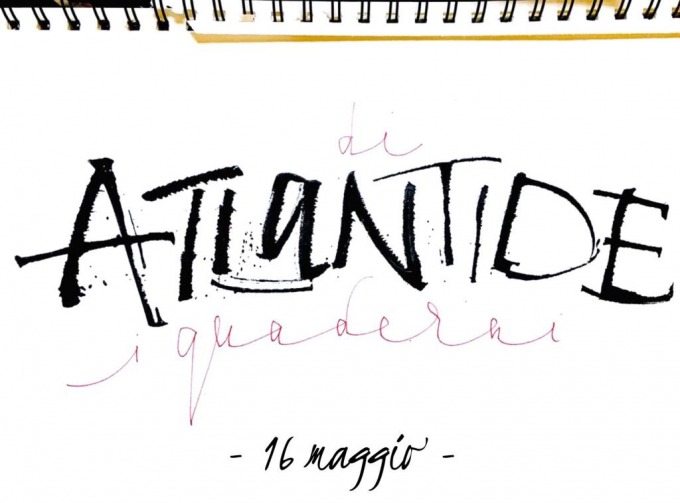 di
ATLaNTIDE
i quaderni
- 16 maggio -